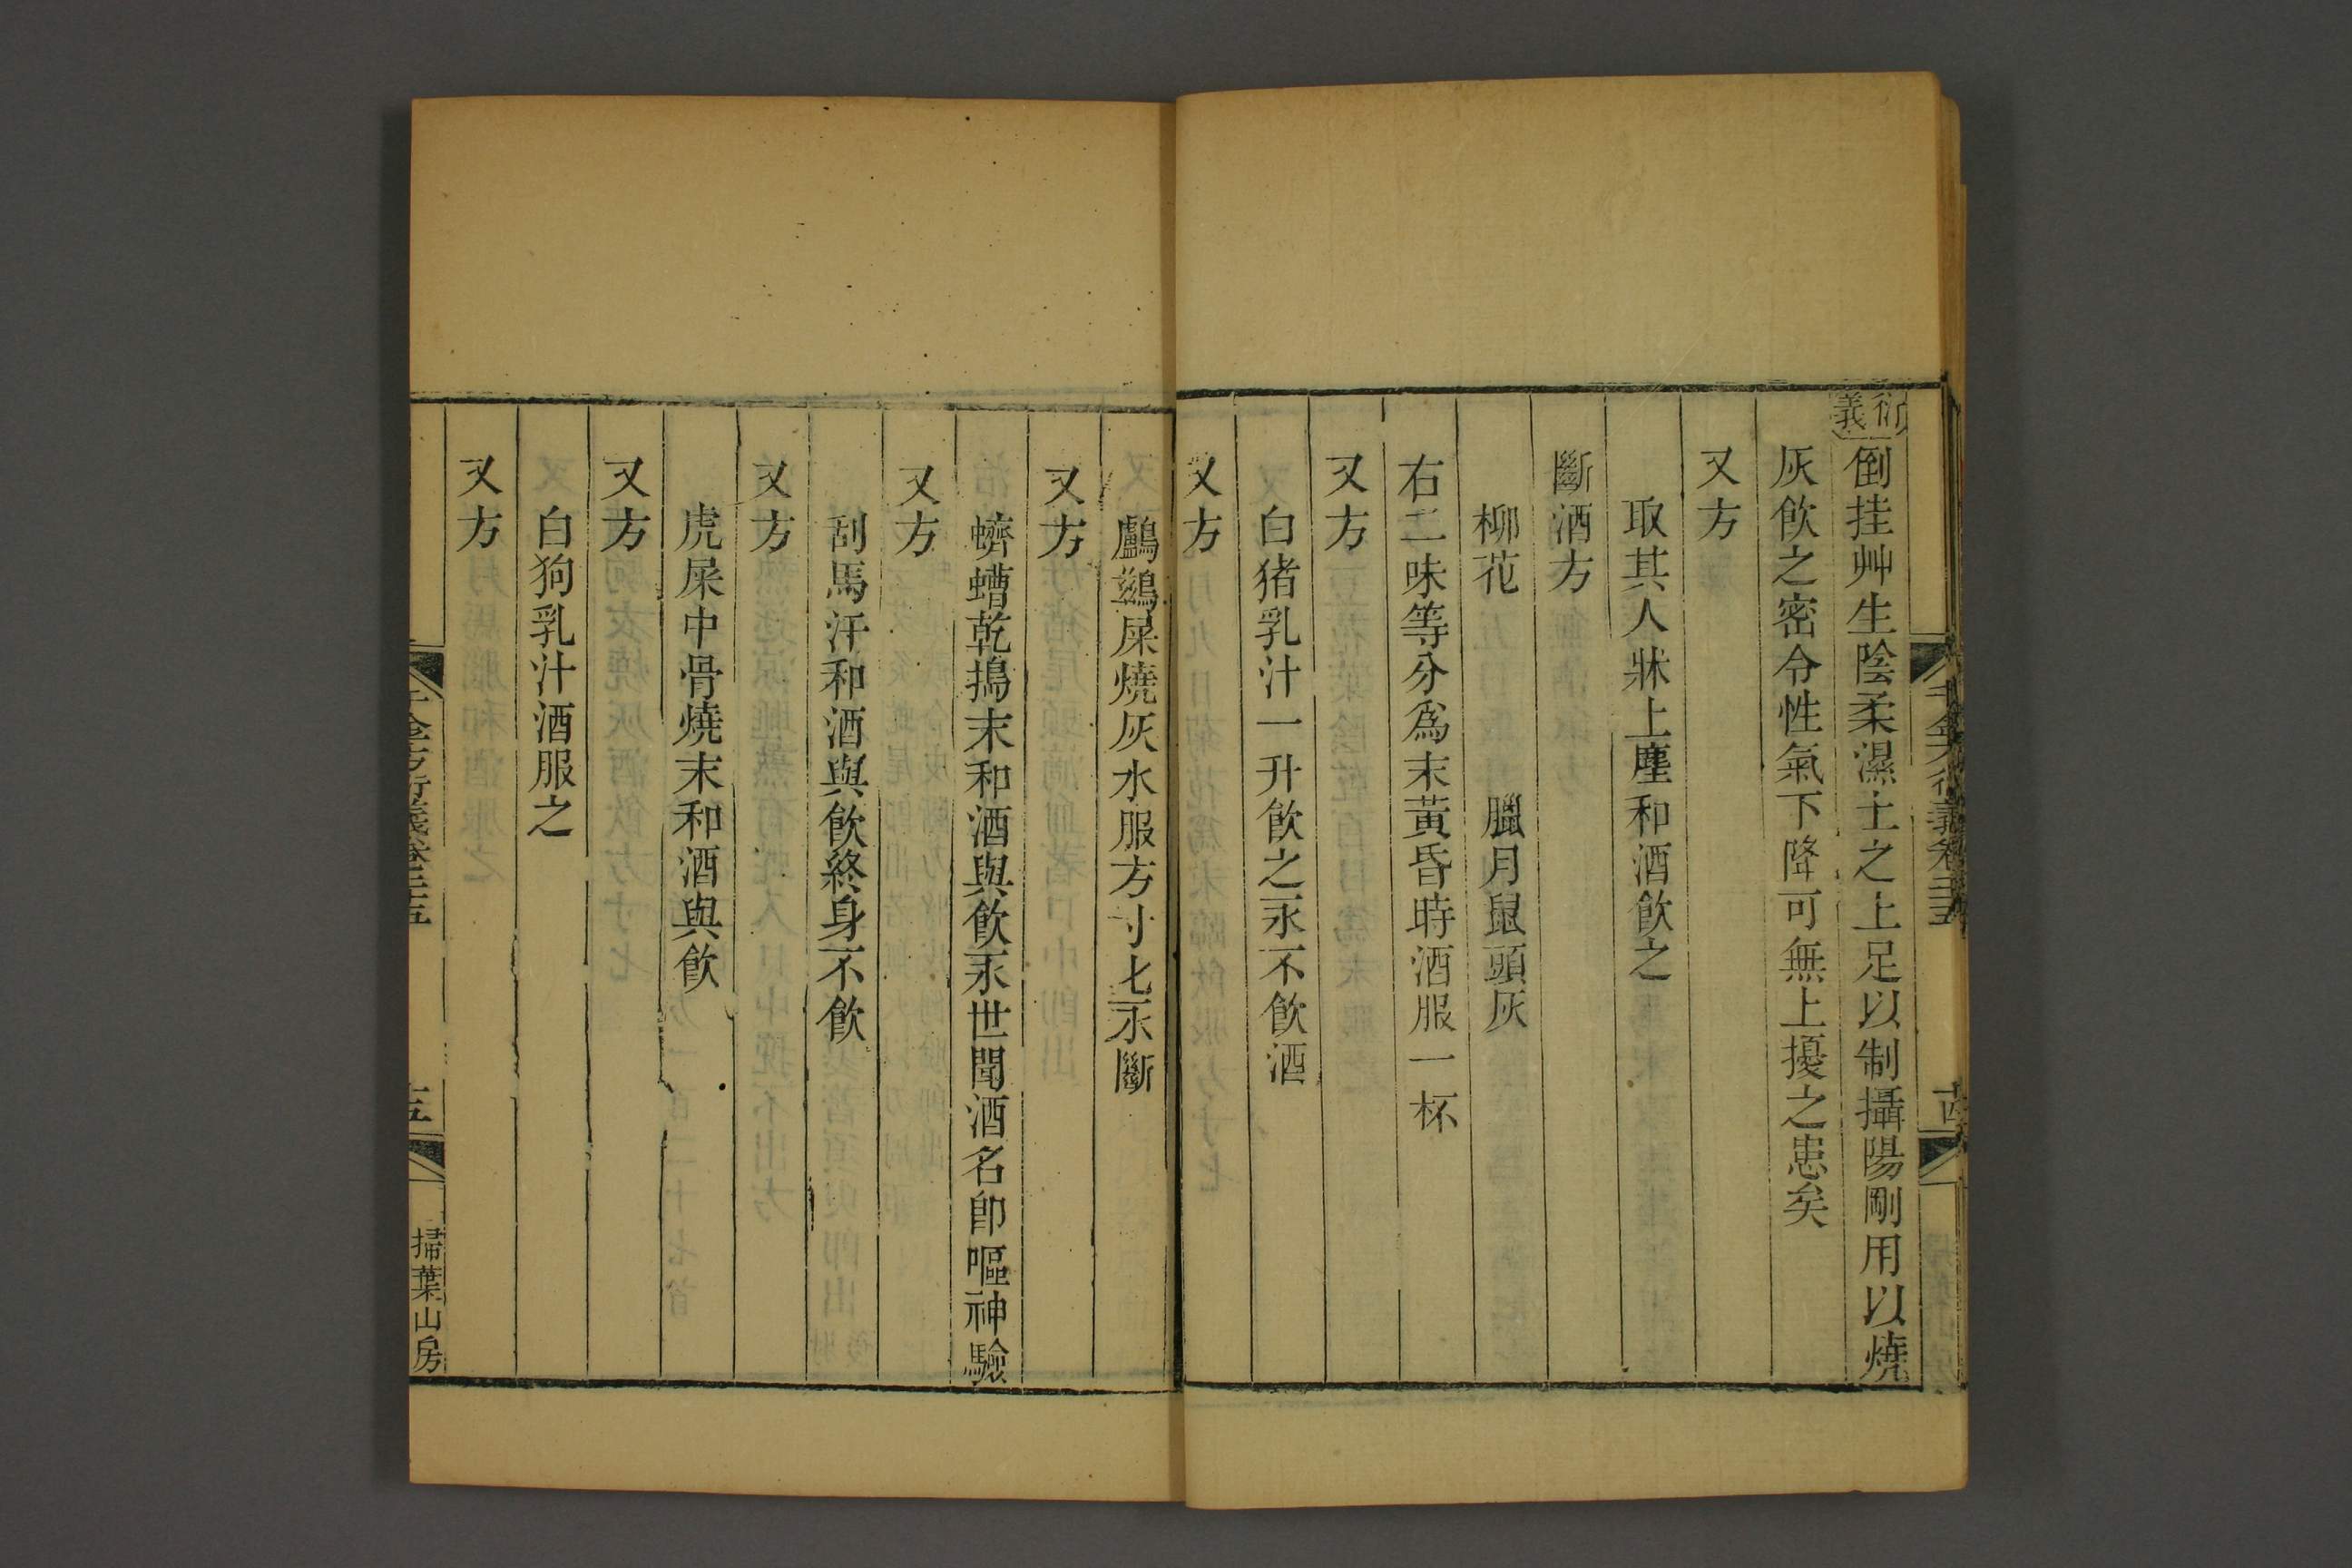 千金方衍義卷二十五
十四
衍義
倒挂艸生陰柔濕土之上足以制攝陽剛用以燒
灰飲之密令性氣下降可無上擾之患矣
又方
取其人牀上塵和酒飲之
斷酒方
柳花 臘月鼠頭灰
右二味等分爲末黃昏時酒服一杯
又方
白猪乳汁一升飲之永不飲酒
又方
鸕鷀屎燒灰水服方寸匕永斷
又方
蠐螬乾搗末和酒與飲永世聞酒名卽嘔神驗
又方
刮馬汗和酒與飲終身不飲
又方
虎屎中骨燒末和酒與飲
又方
白狗乳汁酒服之
又方
千金方衍義卷二十五
十五
掃葉山房